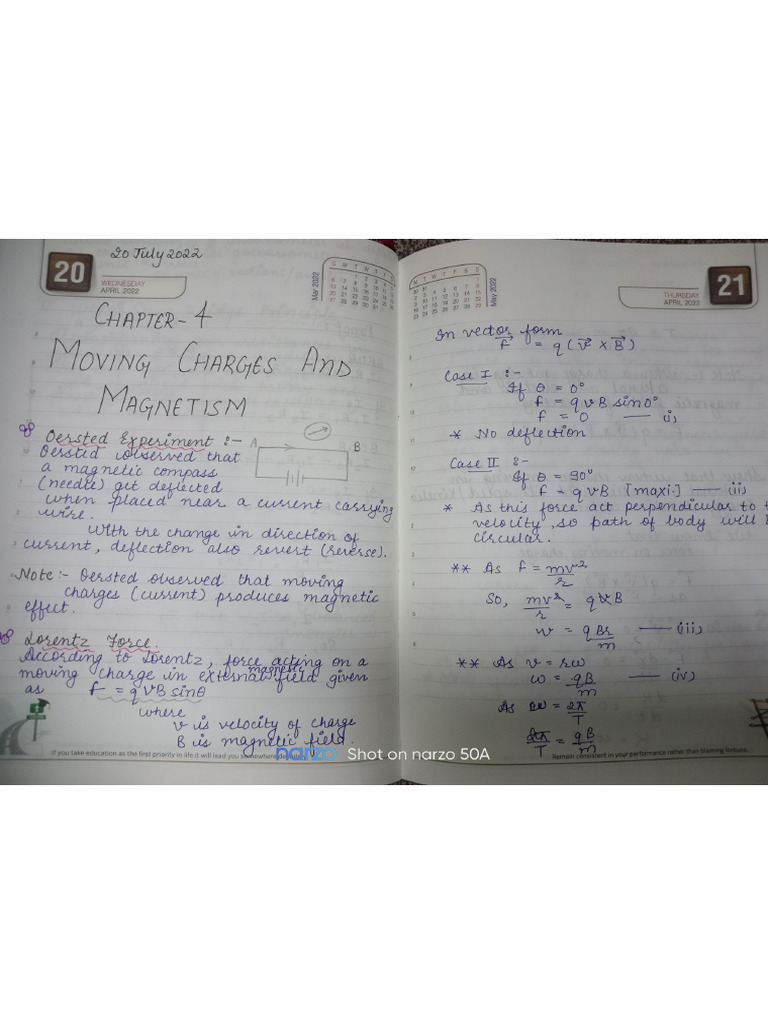 20 July 2022
20
WEDNESDAY
APRIL 2022
Mar 2022
CHAPTER-4
MOVING CHARGES AND
MAGNETISM
Oersted Experiment :-
A
B
Oersted observed that
a magnetic compass
(needle) get deflected
when placed near a current carrying
wire.
With the change in direction of
current, deflection also revert (reverse).
Note:- Oersted observed that moving
charges (current) produces magnetic
effect.
Lorentz Force.
According to Lorentz, force acting on a
moving charge in external magnetic field given
as f = qvBsinθ
where
v is velocity of charge
B is magnetic field.
If you take education as the first priority in life it will lead you somewhere
narzo Shot on narzo 50A
May 2022
THURSDAY
APRIL 2022
21
In vector form
f⃗ = q(v⃗ × B⃗)
Case I :-
If θ = 0°
f = qvB sin0°
f = 0 —— (i)
* No deflection
Case II :-
If θ = 90°
f = qvB [maxi.] —— (ii)
* As this force act perpendicular to
velocity, so path of body will
circular.
** As f = mv²/r
So, mv²/r = qvB
v = qBr/m —— (iii)
** As v = rω
ω = qB/m —— (iv)
As ω = 2π/T
2π/T = qB/m
Remain consistent in your performance rather than blaming fortune.